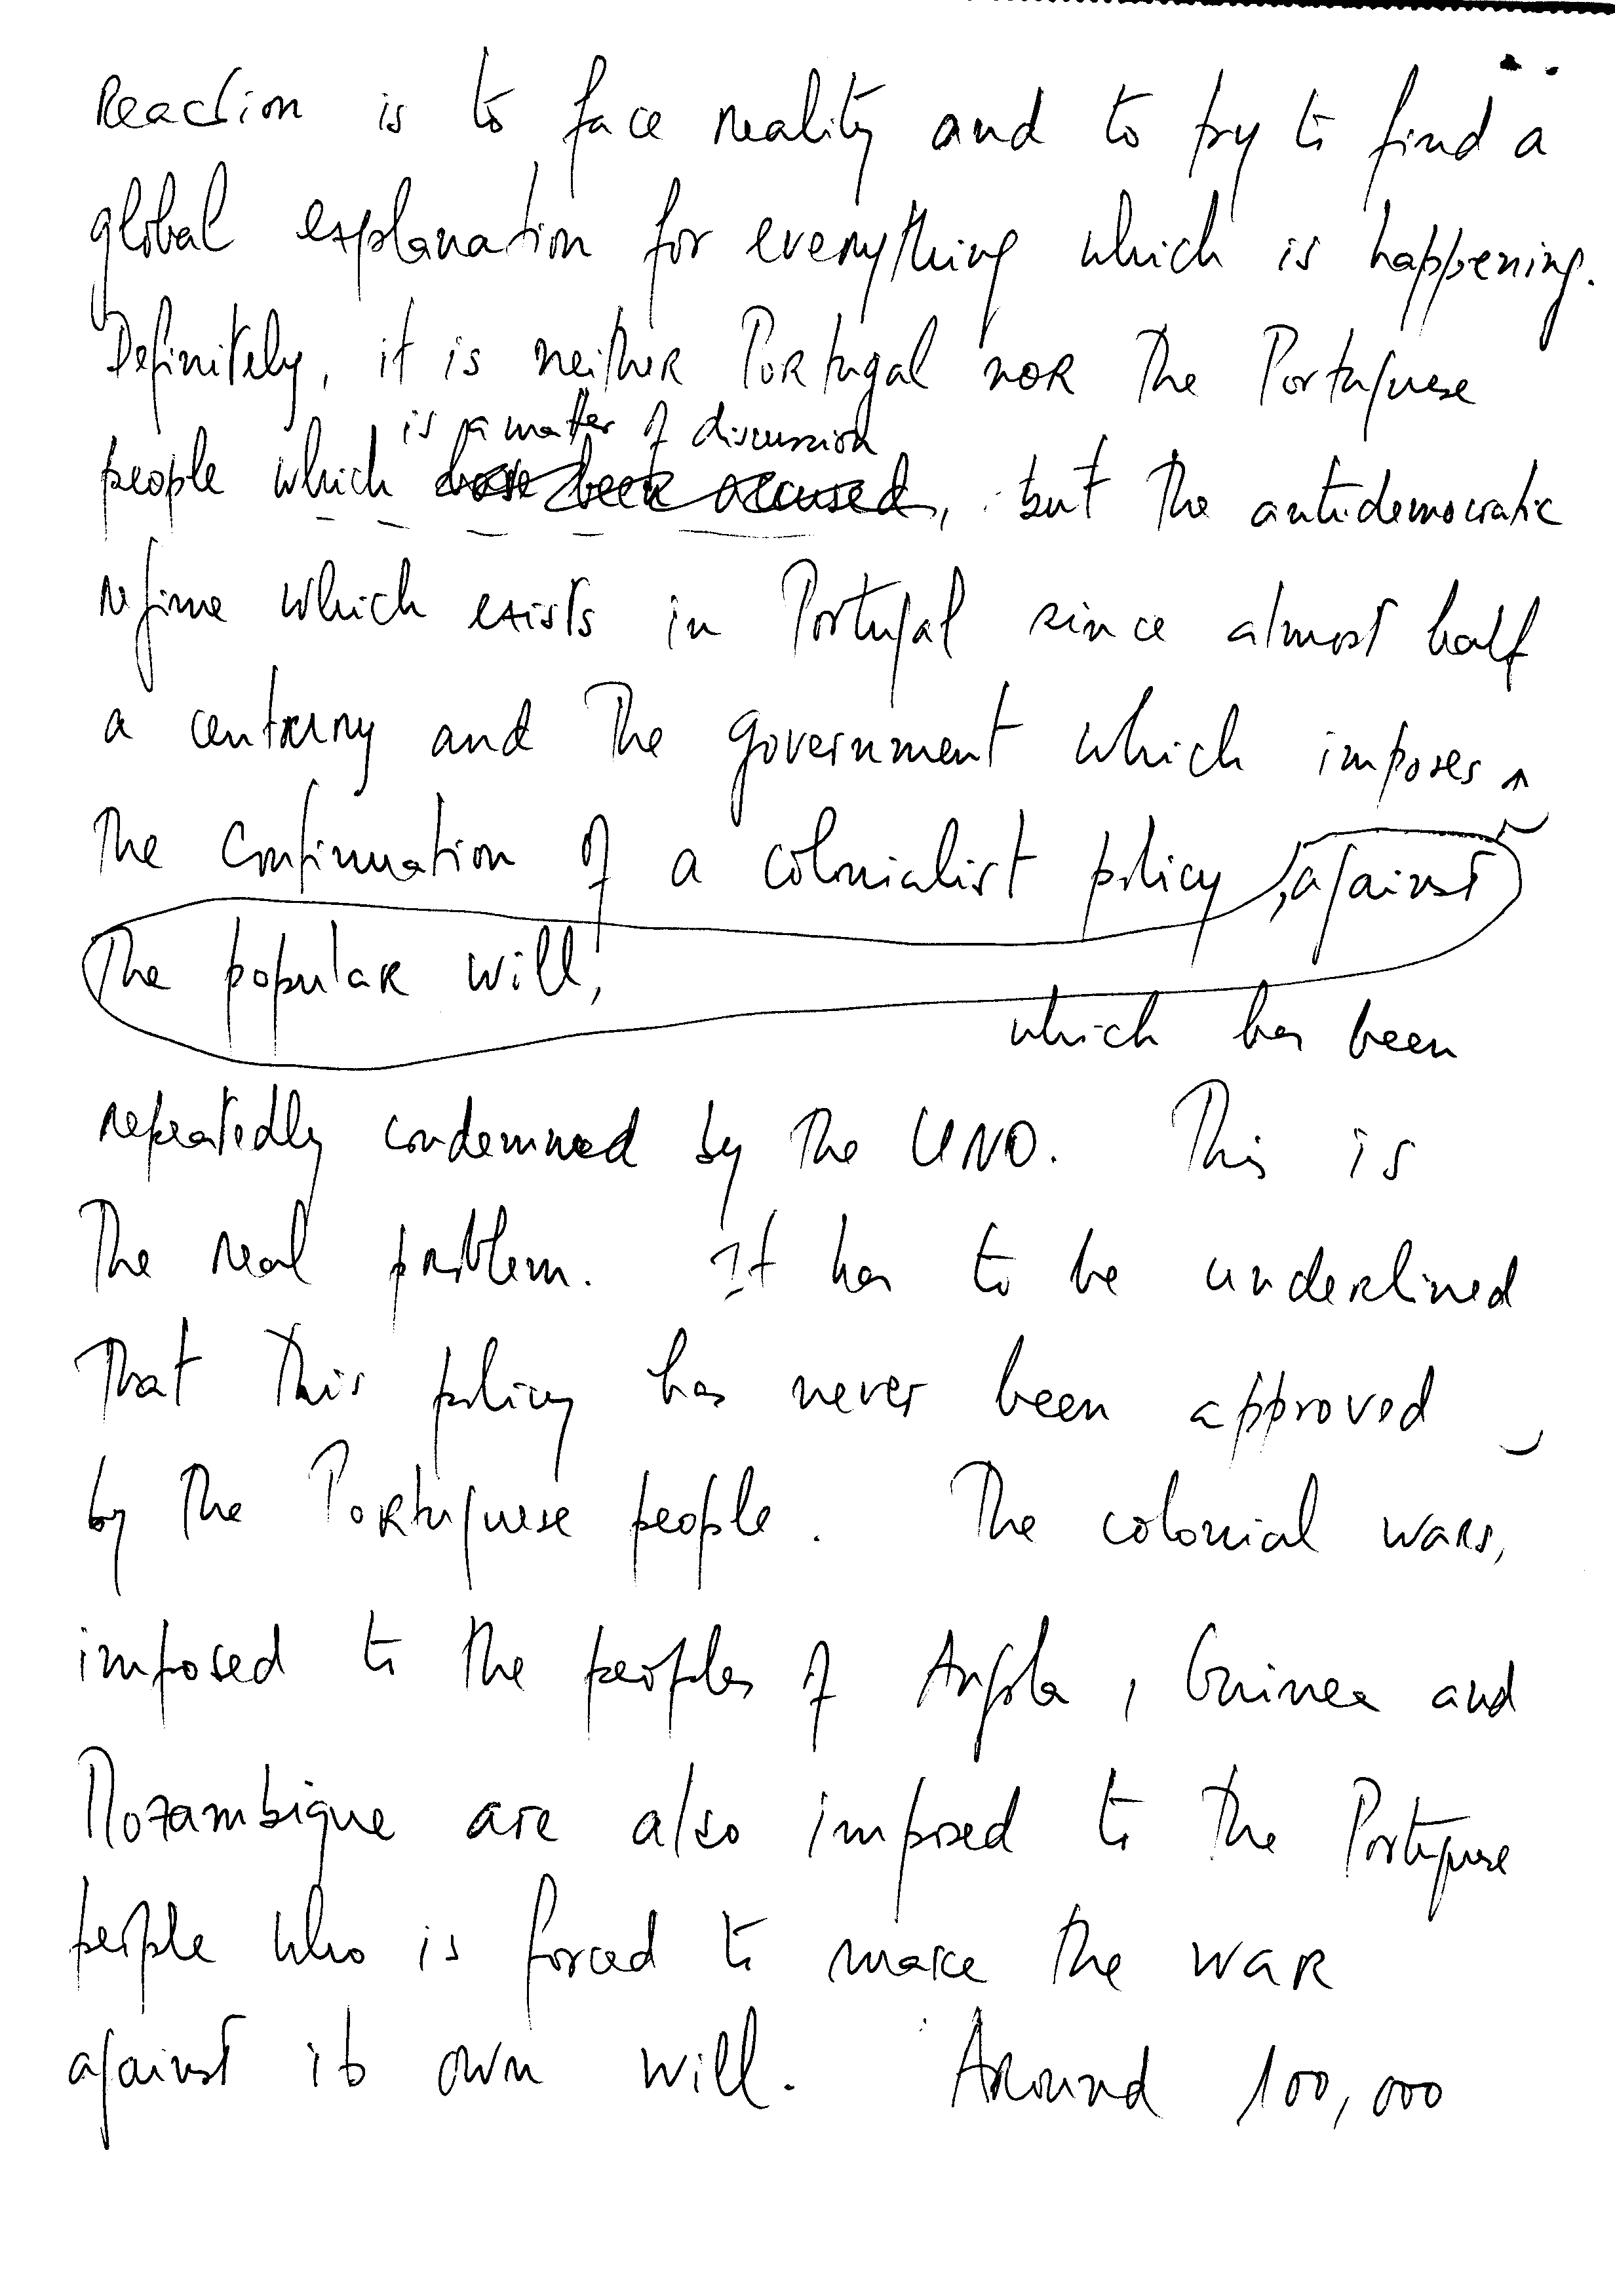 Reaction is to face reality and to try to find a
global explanation for everything which is happening.
Definitely, it is neither Portugal nor the Portuguese
is a matter of discussion
people which have been accused, but the antidemocratic
regime which exists in Portugal since almost half
a century and the government which imposes
the continuation of a colonialist policy, against
the popular will,
which has been
repeatedly condemned by the UNO. This is
the real problem. It has to be underlined
that this policy has never been approved
by the Portuguese people. The colonial wars,
imposed to the peoples of Angola, Guinea and
Mozambique are also imposed to the Portuguese
people who is forced to make the war
against its own will. Around 100,000